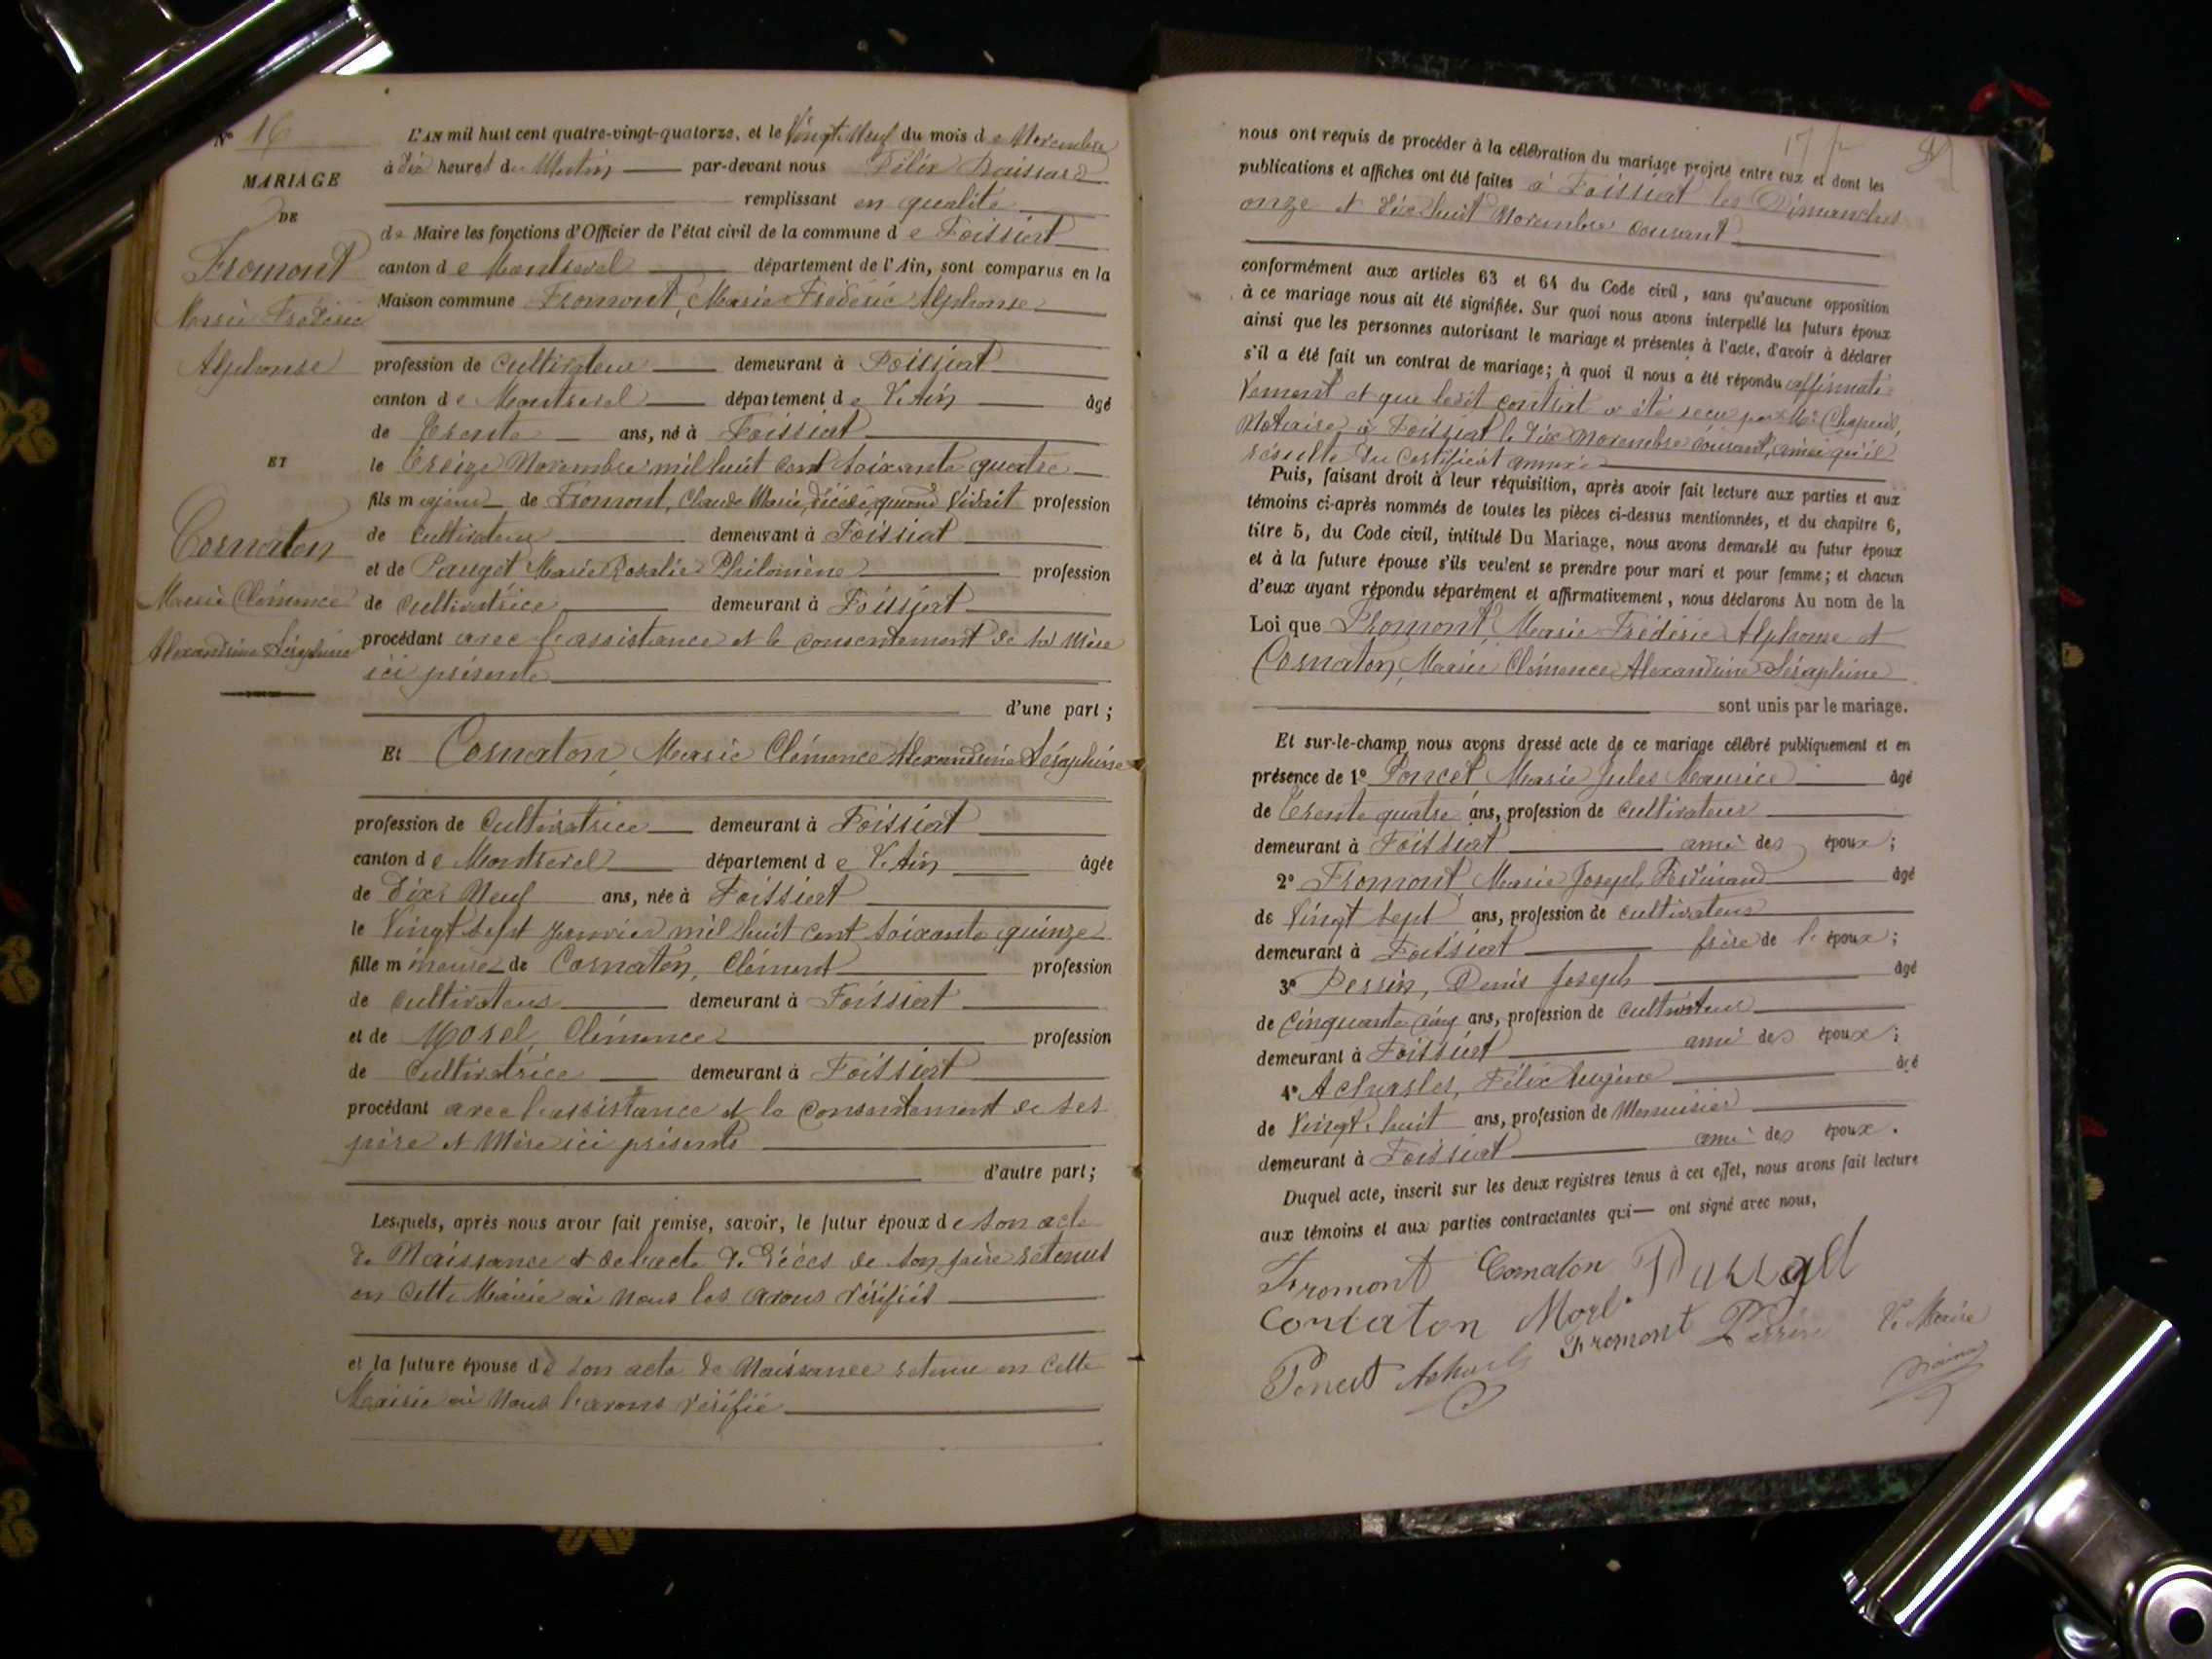 N° 16
MARIAGE
DE
Fromont
Marie Frédéric
Alphonse
ET
Cornaton
Marie Clémence
Alexandrine Séraphine
L'AN mil huit cent quatre-vingt-quatorze, et le Vingt Neuf du mois de Novembre
à dix heures du Matin par-devant nous Félix
remplissant en qualité
de Maire les fonctions d'Officier de l'état civil de la commune de Foissiat
canton de Montrevel département de l'Ain, sont comparus en la
Maison commune Fromont, Marie Frédéric Alphonse
profession de Cultivateur demeurant à Foissiat
canton de Montrevel département de L'Ain âgé
de Trente ans, né à Foissiat
le treize Novembre mil huit cent soixante quatre
fils majeur de Fromont, Claude Marie, décédé, quand Vivait profession
de Cultivateur demeurant à Foissiat
et de Pauget Marie Rosalie Philomène profession
de Cultivatrice demeurant à Foissiat
procédant avec l'assistance et le consentement de sa Mère
ici présente
d'une part ;
Et Cornaton, Marie Clémence Alexandrine Séraphine
profession de Cultivatrice demeurant à Foissiat
canton de Montrevel département de L'Ain âgée
de Dix Neuf ans, née à Foissiat
le Vingt sept Janvier mil huit cent soixante quinze
fille mineure de Cornaton, Clément profession
de Cultivateur demeurant à Foissiat
et de Morel, Clémence profession
de Cultivatrice demeurant à Foissiat
procédant avec l'assistance et le consentement de ses
père et Mère ici présents
d'autre part ;
Lesquels, après nous avoir fait remise, savoir, le futur époux de son acte
de Naissance et de l'acte de Décès de son père retenus
en cette Mairie où Nous les avons Vérifiés
et la future épouse de son acte de Naissance retenu en cette
Mairie où Nous l'avons vérifié
17
nous ont requis de procéder à la célébration du mariage projeté entre eux et dont les
publications et affiches ont été faites à Foissiat les Dimanches
onze et Dix huit Novembre courant
conformément aux articles 63 et 64 du Code civil, sans qu'aucune opposition
à ce mariage nous ait été signifiée. Sur quoi nous avons interpellé les futurs époux
ainsi que les personnes autorisant le mariage et présentes à l'acte, d'avoir à déclarer
s'il a été fait un contrat de mariage ; à quoi il nous a été répondu affirmati-
vement et que ledit contrat a été reçu par Me
Notaire à Foissiat le dix Novembre courant, ainsi qu'il
résulte du certificat annexé
Puis, faisant droit à leur réquisition, après avoir fait lecture aux parties et aux
témoins ci-après nommés de toutes les pièces ci-dessus mentionnées, et du chapitre 6,
titre 5, du Code civil, intitulé Du Mariage, nous avons demandé au futur époux
et à la future épouse s'ils veulent se prendre pour mari et pour femme ; et chacun
d'eux ayant répondu séparément et affirmativement, nous déclarons Au nom de la
Loi que Fromont, Marie Frédéric Alphonse et
Cornaton, Marie Clémence Alexandrine Séraphine
sont unis par le mariage.
Et sur-le-champ nous avons dressé acte de ce mariage célébré publiquement et en
présence de 1° Poncet Marie Jules Maurice âgé
de Trente quatre ans, profession de cultivateur
demeurant à Foissiat ami des époux ;
2° Fromont Marie Joseph Ferdinand âgé
de Vingt sept ans, profession de cultivateur
demeurant à Foissiat frère de l'époux ;
3° Perrin, Denis Joseph âgé
de Cinquante cinq ans, profession de cultivateur
demeurant à Foissiat ami des époux ;
4° Acharles, Félix Eugène âgé
de Vingt huit ans, profession de Menuisier
demeurant à Foissiat ami des époux.
Duquel acte, inscrit sur les deux registres tenus à cet effet, nous avons fait lecture
aux témoins et aux parties contractantes qui ont signé avec nous,
Fromont Cornaton
Cornaton Morel Fromont Perrin Le Maire